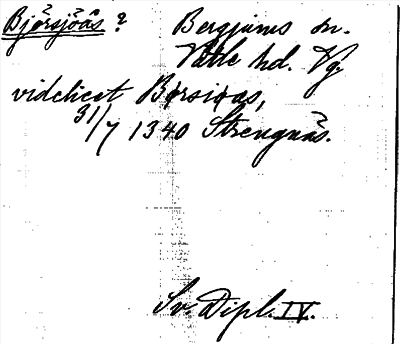 Björsjöås? Bergjums sn.
Vätle hd. Vg.
videlicet Börsioas,
31/7 1340 Strengnäs.
Sv. Dipl. IV.